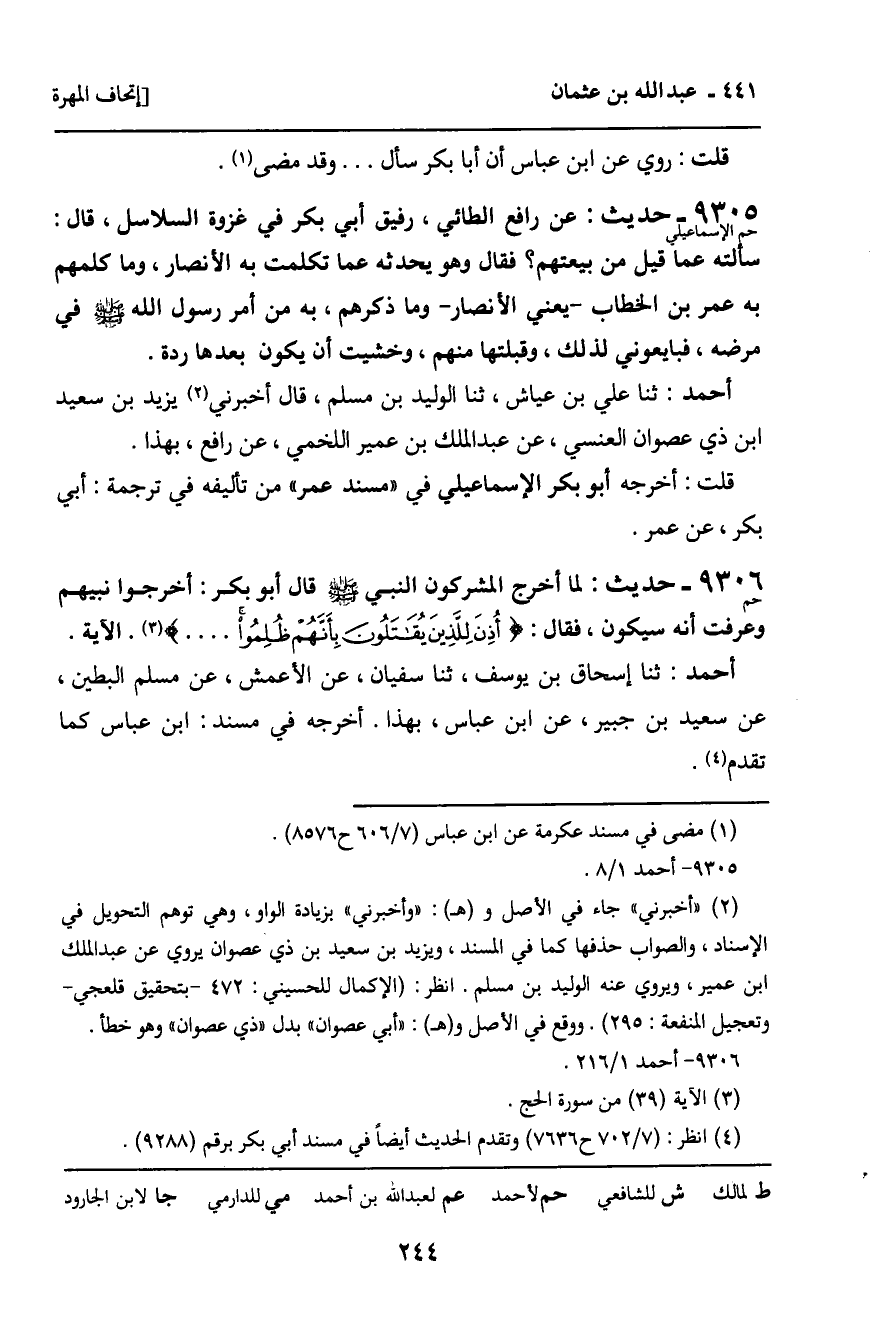 ٤٤١ ـ عبدالله بن عثمان [إتحاف المهرة
قلت : روي عن ابن عباس أن أبا بكر سأل . . . وقد مضى(١) .
٩٣٠٥ ـ حديث : عن رافع الطائي ، رفيق أبي بكر في غزوة السلاسل ، قال :
حم الإسماعيلي
سألته عما قيل من بيعتهم؟ فقال وهو يحدثه عما تكلمت به الأنصار ، وما كلمهم
به عمر بن الخطاب -يعني الأنصار- وما ذكرهم ، به من أمر رسول الله ﷺ في
مرضه ، فبايعوني لذلك ، وقبلتها منهم ، وخشيت أن يكون بعدها ردة .
أحمد : ثنا علي بن عياش ، ثنا الوليد بن مسلم ، قال أخبرني(٢) يزيد بن سعيد
ابن ذي عصوان العنسي ، عن عبدالملك بن عمير اللخمي ، عن رافع ، بهذا .
قلت : أخرجه أبو بكر الإسماعيلي في «مسند عمر» من تأليفه في ترجمة : أبي
بكر ، عن عمر .
٩٣٠٦ ـ حديث : لما أخرج المشركون النبي ﷺ قال أبو بكر : أخرجوا نبيهم
حم
وعرفت أنه سيكون ، فقال : ﴿ أُذِنَ لِلَّذِينَ يُقَٰتَلُونَ بِأَنَّهُمْ ظُلِمُواْ . . . . ﴾(٣) . الآية .
أحمد : ثنا إسحاق بن يوسف ، ثنا سفيان ، عن الأعمش ، عن مسلم البطين ،
عن سعيد بن جبير ، عن ابن عباس ، بهذا . أخرجه في مسند : ابن عباس كما
تقدم(٤) .
(١) مضى في مسند عكرمة عن ابن عباس (٦٠٦/٧ ح٨٥٧٦) .
٩٣٠٥- أحمد ٨/١ .
(٢) «أخبرني» جاء في الأصل و (هـ) : «وأخبرني» بزيادة الواو ، وهي توهم التحويل في
الإسناد ، والصواب حذفها كما في المسند ، ويزيد بن سعيد بن ذي عصوان يروي عن عبدالملك
ابن عمير ، ويروي عنه الوليد بن مسلم . انظر : (الإكمال للحسيني : ٤٧٢ -بتحقيق قلعجي-
وتعجيل المنفعة : ٢٩٥) . ووقع في الأصل و(هـ) : «أبي عصوان» بدل «ذي عصوان» وهو خطأ .
٩٣٠٦- أحمد ٢١٦/١ .
(٣) الآية (٣٩) من سورة الحج .
(٤) انظر : (٧٠٢/٧ ح٧٦٣٦) وتقدم الحديث أيضاً في مسند أبي بكر برقم (٩٢٨٨) .
ط لمالك ش للشافعي حم لأحمد عم لعبدالله بن أحمد مي للدارمي جا لابن الجارود
٢٤٤